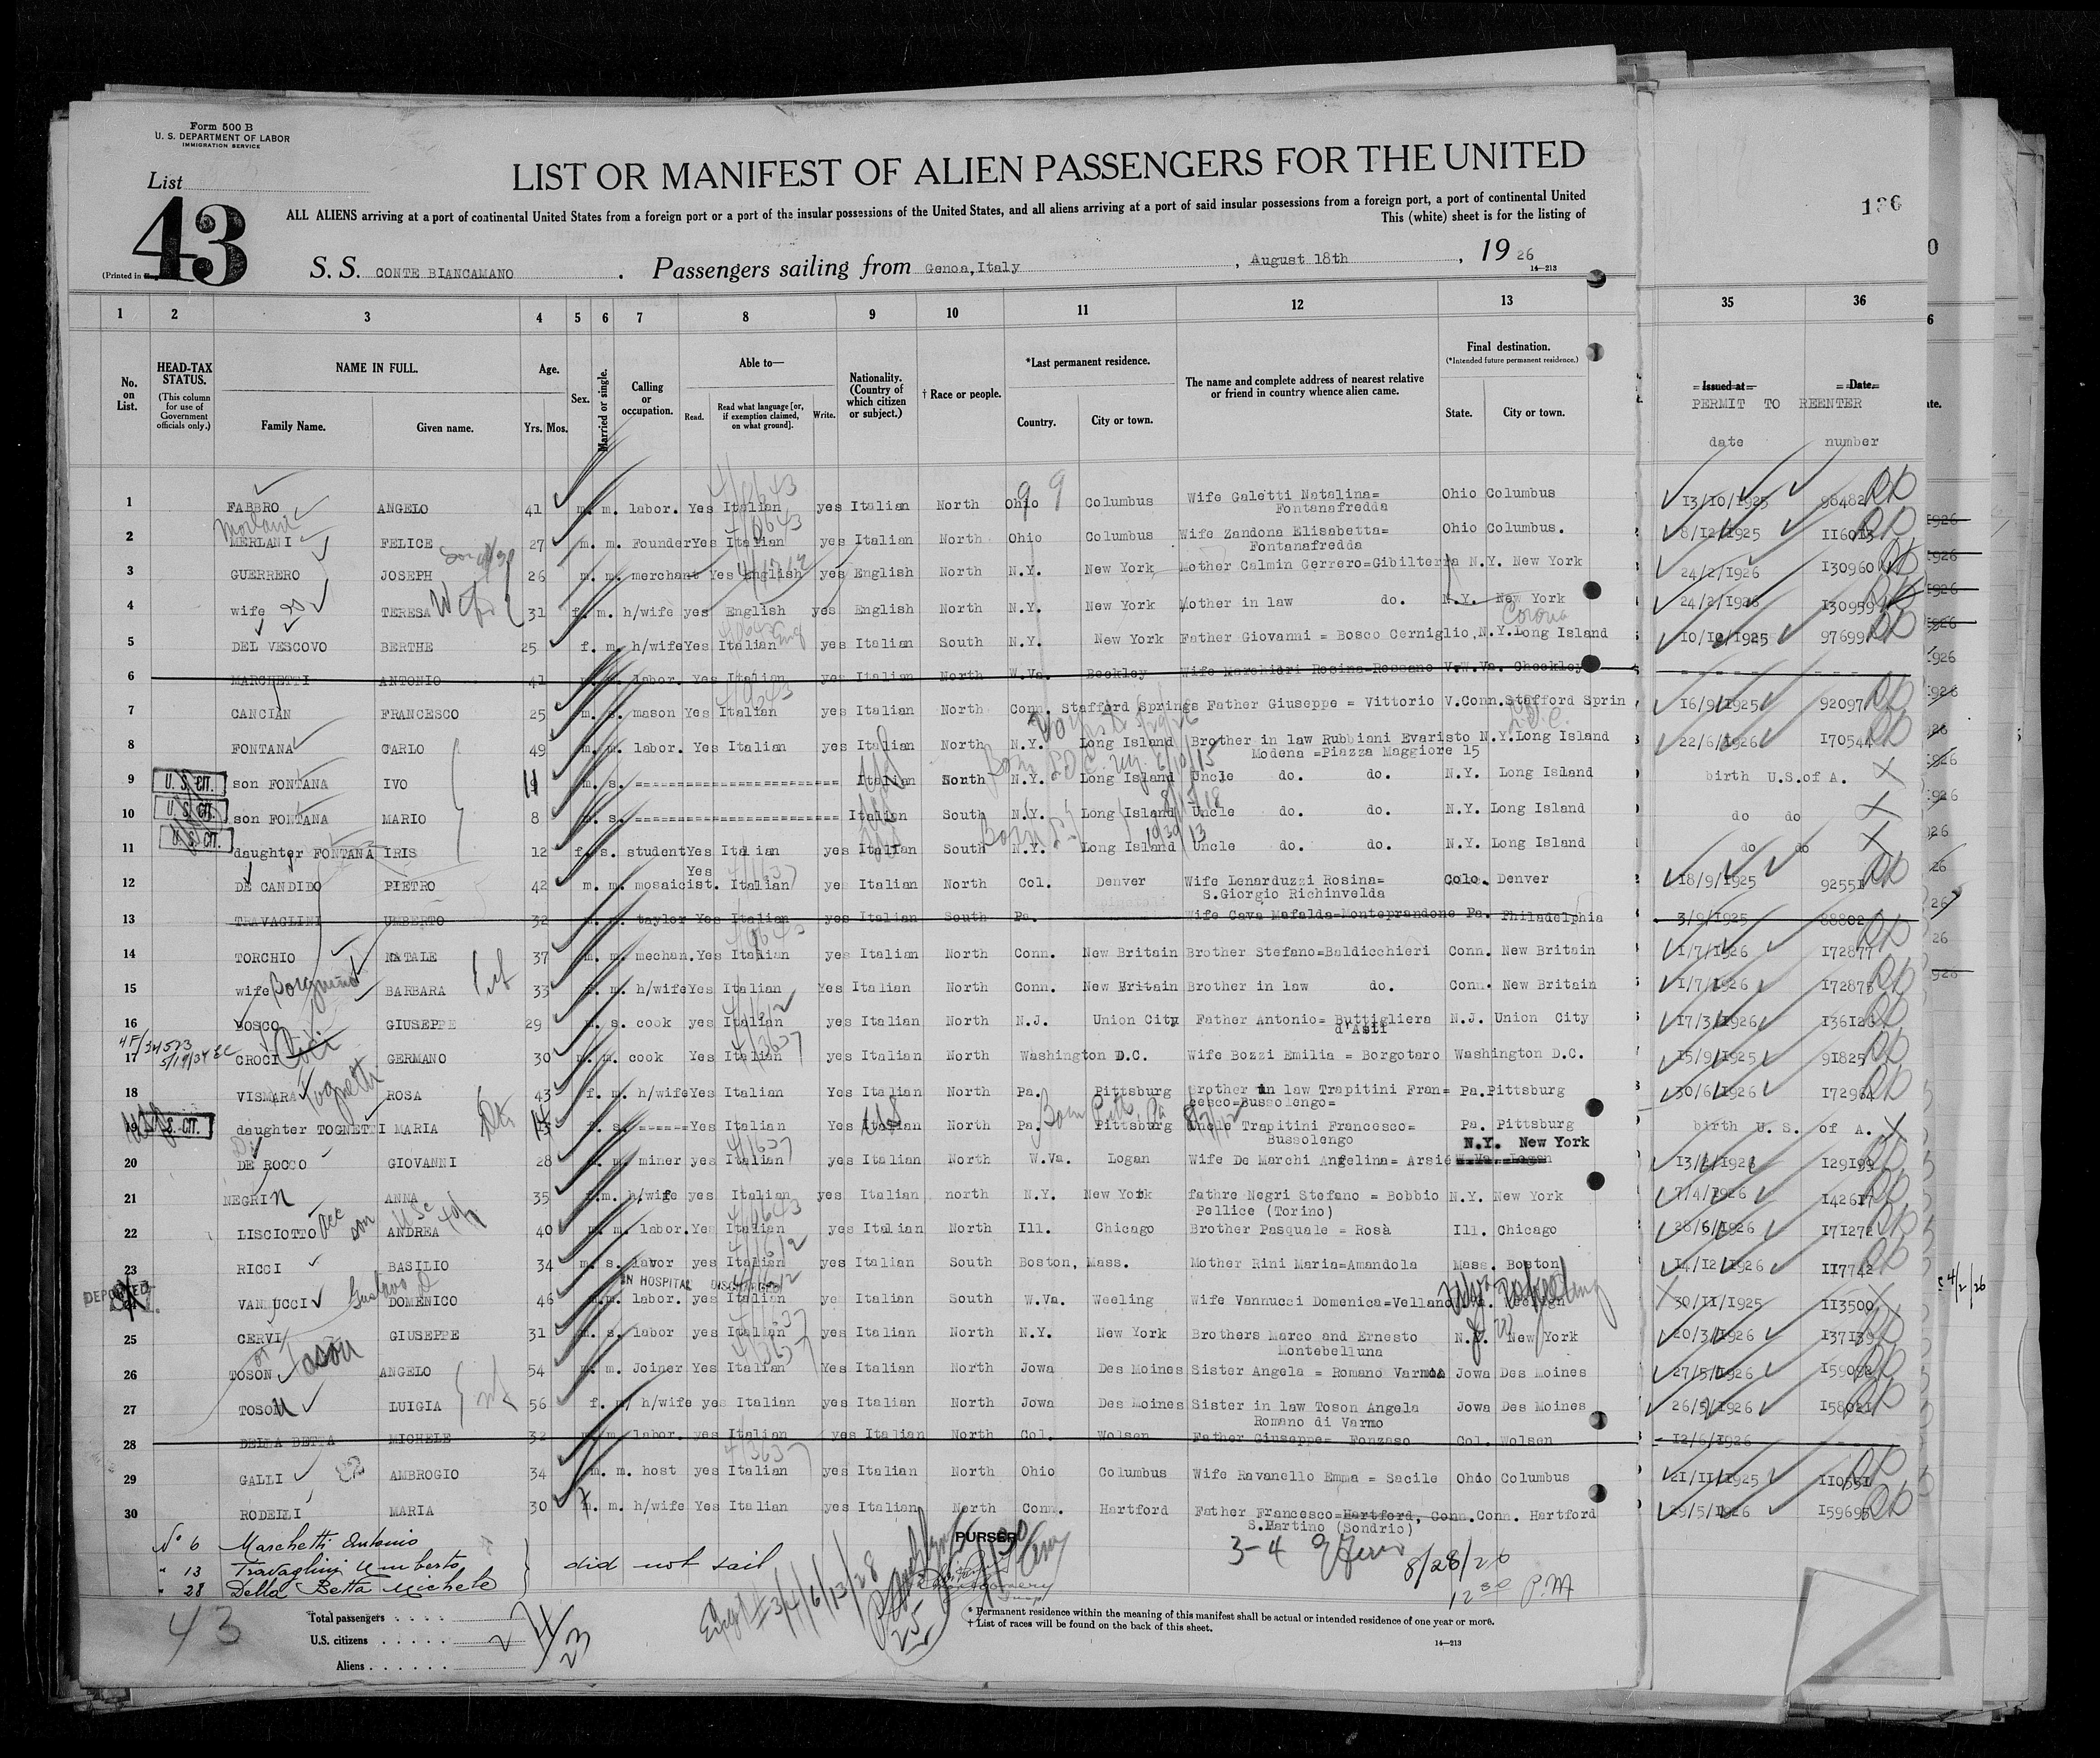 Form 500 B
U. S. DEPARTMENT OF LABOR
IMMIGRATION SERVICE
List
43
LIST OR MANIFEST OF ALIEN PASSENGERS FOR THE UNITED
ALL ALIENS arriving at a port of continental United States from a foreign port or a port of the insular possessions of the United States, and all aliens arriving at a port of said insular possessions from a foreign port, a port of continental United
This (white) sheet is for the listing of
(Printed in
S. S. CONTE BIANCAMANO . Passengers sailing from Genoa,Italy , August 18th , 19 26
14—213
136
1 2 3 4 5 6 7 8 9 10 11 12 13 35 36
No. on List.
HEAD-TAX STATUS.
(This column for use of Government officials only.)
NAME IN FULL.
Family Name. Given name.
Age.
Yrs. Mos.
Sex.
Married or single.
Calling or occupation.
Able to—
Read. Read what language [or, if exemption claimed, on what ground]. Write.
Nationality. (Country of which citizen or subject.)
† Race or people.
*Last permanent residence.
Country. City or town.
The name and complete address of nearest relative or friend in country whence alien came.
Final destination.
(*Intended future permanent residence.)
State. City or town.
Issued at Date.
PERMIT TO REENTER
date number
1 FABBRO ANGELO 41 m. m. labor. Yes Italian yes Italian North Ohio Columbus Wife Galetti Natalina= Ohio Columbus 13/10/1925 98482
Fontanafredda
2 MERLANI FELICE 27 m. m. Founder Yes Italian yes Italian North Ohio Columbus Wife Zandona Elisabetta= Ohio Columbus. 8/12/1925 116015
Fontanafredda
3 GUERRERO JOSEPH 26 m. m. merchant Yes English yes English North N.Y. New York Mother Calmin Gerrero=Gibilterra N.Y. New York 24/2/1926 130960
4 wife TERESA 31 f. m. h/wife yes English yes English North N.Y. New York Mother in law do. N.Y. New York 24/2/1926 130959
Corona
5 DEL VESCOVO BERTHE 25 f. m. h/wife Yes Italian yes Italian South N.Y. New York Father Giovanni = Bosco Cerniglio, N.Y. Long Island 10/10/1925 97699
6 MARCHETTI ANTONIO 41 m. labor. Yes Italian yes Italian North W.Va. Beckley Wife Marchidri Rosina=Rossano V. W.Va. Checkley
7 CANCIAN FRANCESCO 25 m. s. mason Yes Italian yes Italian North Conn. Stafford Springs Father Giuseppe = Vittorio V. Conn. Stafford Sprin 16/9/1925 92097
8 FONTANA CARLO 49 m. m. labor. Yes Italian yes Italian North N.Y. Long Island Brother in law Rubbiani Evaristo N.Y. Long Island 22/6/1926 170544
Modena =Piazza Maggiore 15
9 U. S. CIT. son FONTANA IVO 11 m. s. Italian North N.Y. Long Island Uncle do. do. N.Y. Long Island birth U.S.of A.
10 U. S. CIT. son FONTANA MARIO 8 m. s. Italian South N.Y. Long Island Uncle do. do. N.Y. Long Island do do
11 U. S. CIT. daughter FONTANA IRIS 12 f. s. student Yes Italian yes Italian South N.Y. Long Island Uncle do. do. N.Y. Long Island do do
12 DE CANDIDO PIETRO 42 m. m. mosaicist. Yes Italian yes Italian North Col. Denver Wife Lenarduzzi Rosina= Colo. Denver 18/9/1925 92551
S.Giorgio Richinvelda
13 TRAVAGLINI UMBERTO 32 m. taylor Yes Italian yes Italian South Pa. Wife Cava Mafalda=Monteprandone Pa. Philadelphia 3/9/1925 88802
14 TORCHIO NATALE 37 m. m. mechan. Yes Italian yes Italian North Conn. New Britain Brother Stefano=Baldicchieri Conn. New Britain 1/7/1926 172877
15 wife BARBARA 33 f. m. h/wife Yes Italian Yes Italian North Conn. New Britain Brother in law do. Conn. New Britain 1/7/1926 172875
16 BOSCO GIUSEPPE 29 m. s. cook yes Italian yes Italian North N.J. Union City Father Antonio= Buttigliera N.J. Union City 17/3/1926 136126
d'Asti
17 CROCI GERMANO 30 m. m. cook Yes Italian yes Italian North Washington D.C. Wife Bozzi Emilia = Borgotaro Washington D.C. 15/9/1925 91825
18 VISMARA Tognetti ROSA 43 f. m. h/wife Yes Italian Yes Italian North Pa. Pittsburg Brother in law Trapitini Fran= Pa. Pittsburg 30/6/1926 172964
cesco=Bussolengo=
19 daughter TOGNETTI MARIA f. s. Yes Italian Yes Italian North Pa. Pittsburg Uncle Trapitini Francesco= Pa. Pittsburg birth U. S. of A.
Bussolengo N.Y. New York
20 DE ROCCO GIOVANNI 28 m. m. miner yes Italian yes Italian North W.Va. Logan Wife De Marchi Angelina= Arsié W.Va. Logan 129199
21 NEGRIN ANNA 35 f.m. h/wife yes Italian yes Italian north N.Y. New York fathre Negri Stefano = Bobbio N.Y. New York 7/4/1926 142617
Pellice (Torino)
22 LISCIOTTO ANDREA 40 m. m. labor. Yes Italian yes Italian North Ill. Chicago Brother Pasquale = Rosà Ill. Chicago 28/6/1926 171272
23 RICCI BASILIO 34 m. s. labor yes Italian yes Italian South Boston, Mass. Mother Rini Maria=Amandola Mass. Boston 14/12/1925 117742
DEPORTED IN HOSPITAL DISCHARGED
VANNUCCI DOMENICO 46 m.m. labor. yes Italian yes Italian South W.Va. Weeling Wife Vannucci Domenica=Vellano 30/11/1925 113500
25 CERVI GIUSEPPE 31 m. s. labor yes Italian yes Italian North N.Y. New York Brothers Marco and Ernesto N.Y. New York 20/3/1926 137139
Montebelluna
26 TOSON ANGELO 54 m. m. Joiner Yes Italian Yes Italian North Jowa Des Moines Sister Angela = Romano Varmo Jowa Des Moines 27/5/1926 159092
27 TOSON LUIGIA 56 f. m. h/wife yes Italian yes Italian North Jowa Des Moines Sister in law Toson Angela Jowa Des Moines 26/5/1926 158021
Romano di Varmo
28 DELLA BETTA MICHELE 32 m. m. labor. yes Italian yes Italian North Col. Wolsen Father Giuseppe= Fonzaso Col. Wolsen 12/6/1926
29 GALLI AMBROGIO 34 m. m. host yes Italian yes Italian North Ohio Columbus Wife Ravanello Emma = Sacile Ohio Columbus 21/11/1925 110551
30 RODELLI MARIA 30 m. h/wife Yes Italian yes Italian North Conn. Hartford Father Francesco=Hartford, Conn. Conn. Hartford 29/5/1926 159695
S.Martino (Sondrio)
No 6 Marchetti Antonio
" 13 Travaglini Umberto
" 28 Della Betta Michele
did not sail
PURSER
3-4
8/28/26
12 30 P.M
43
Total passengers
U.S. citizens 2
Aliens
23
25
* Permanent residence within the meaning of this manifest shall be actual or intended residence of one year or more.
† List of races will be found on the back of this sheet.
14—213